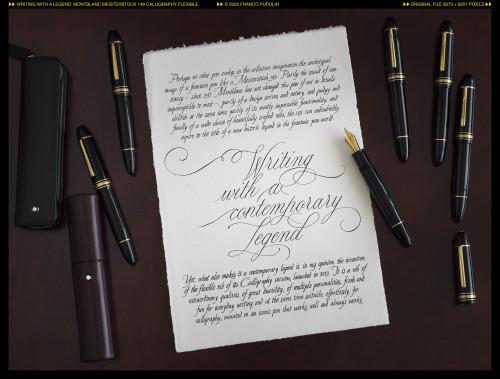 WRITING WITH A LEGEND: MONTBLANC MEISTERSTÜCK 149 CALLIGRAPHY FLEXIBLE
© 2023 FRANCO PUPULIN
ORIGINAL FILE 8273 x 6201 PIXELS
Perhaps no other pen evokes in the collective imagination the archetypal
image of a fountain pen like a Meisterstück 149. Partly the result of con-
stancy – since 1952 Montblanc has not changed this pen if not in details
imperceptible to most –, partly of a design serious and
elitish at the same time, partly of its nearly impeccable functionality, and
finally of a wide choice of beautifully crafted nibs, the 149 can undoubtedly
aspire to the title of a new historic legend in the fountain pen world.
Writing
with a
contemporary
Legend
Yet, what also makes it a contemporary legend is, in my opinion, the invention
of the flexible nib of its Calligraphy version, launched in 2019. It is a nib of
extraordinary qualities of great ductility, of multiple personalities, fresh and
fun for everyday writing and at the same time suitable, effectively, for
calligraphy, mounted on an iconic pen that works well and always works.